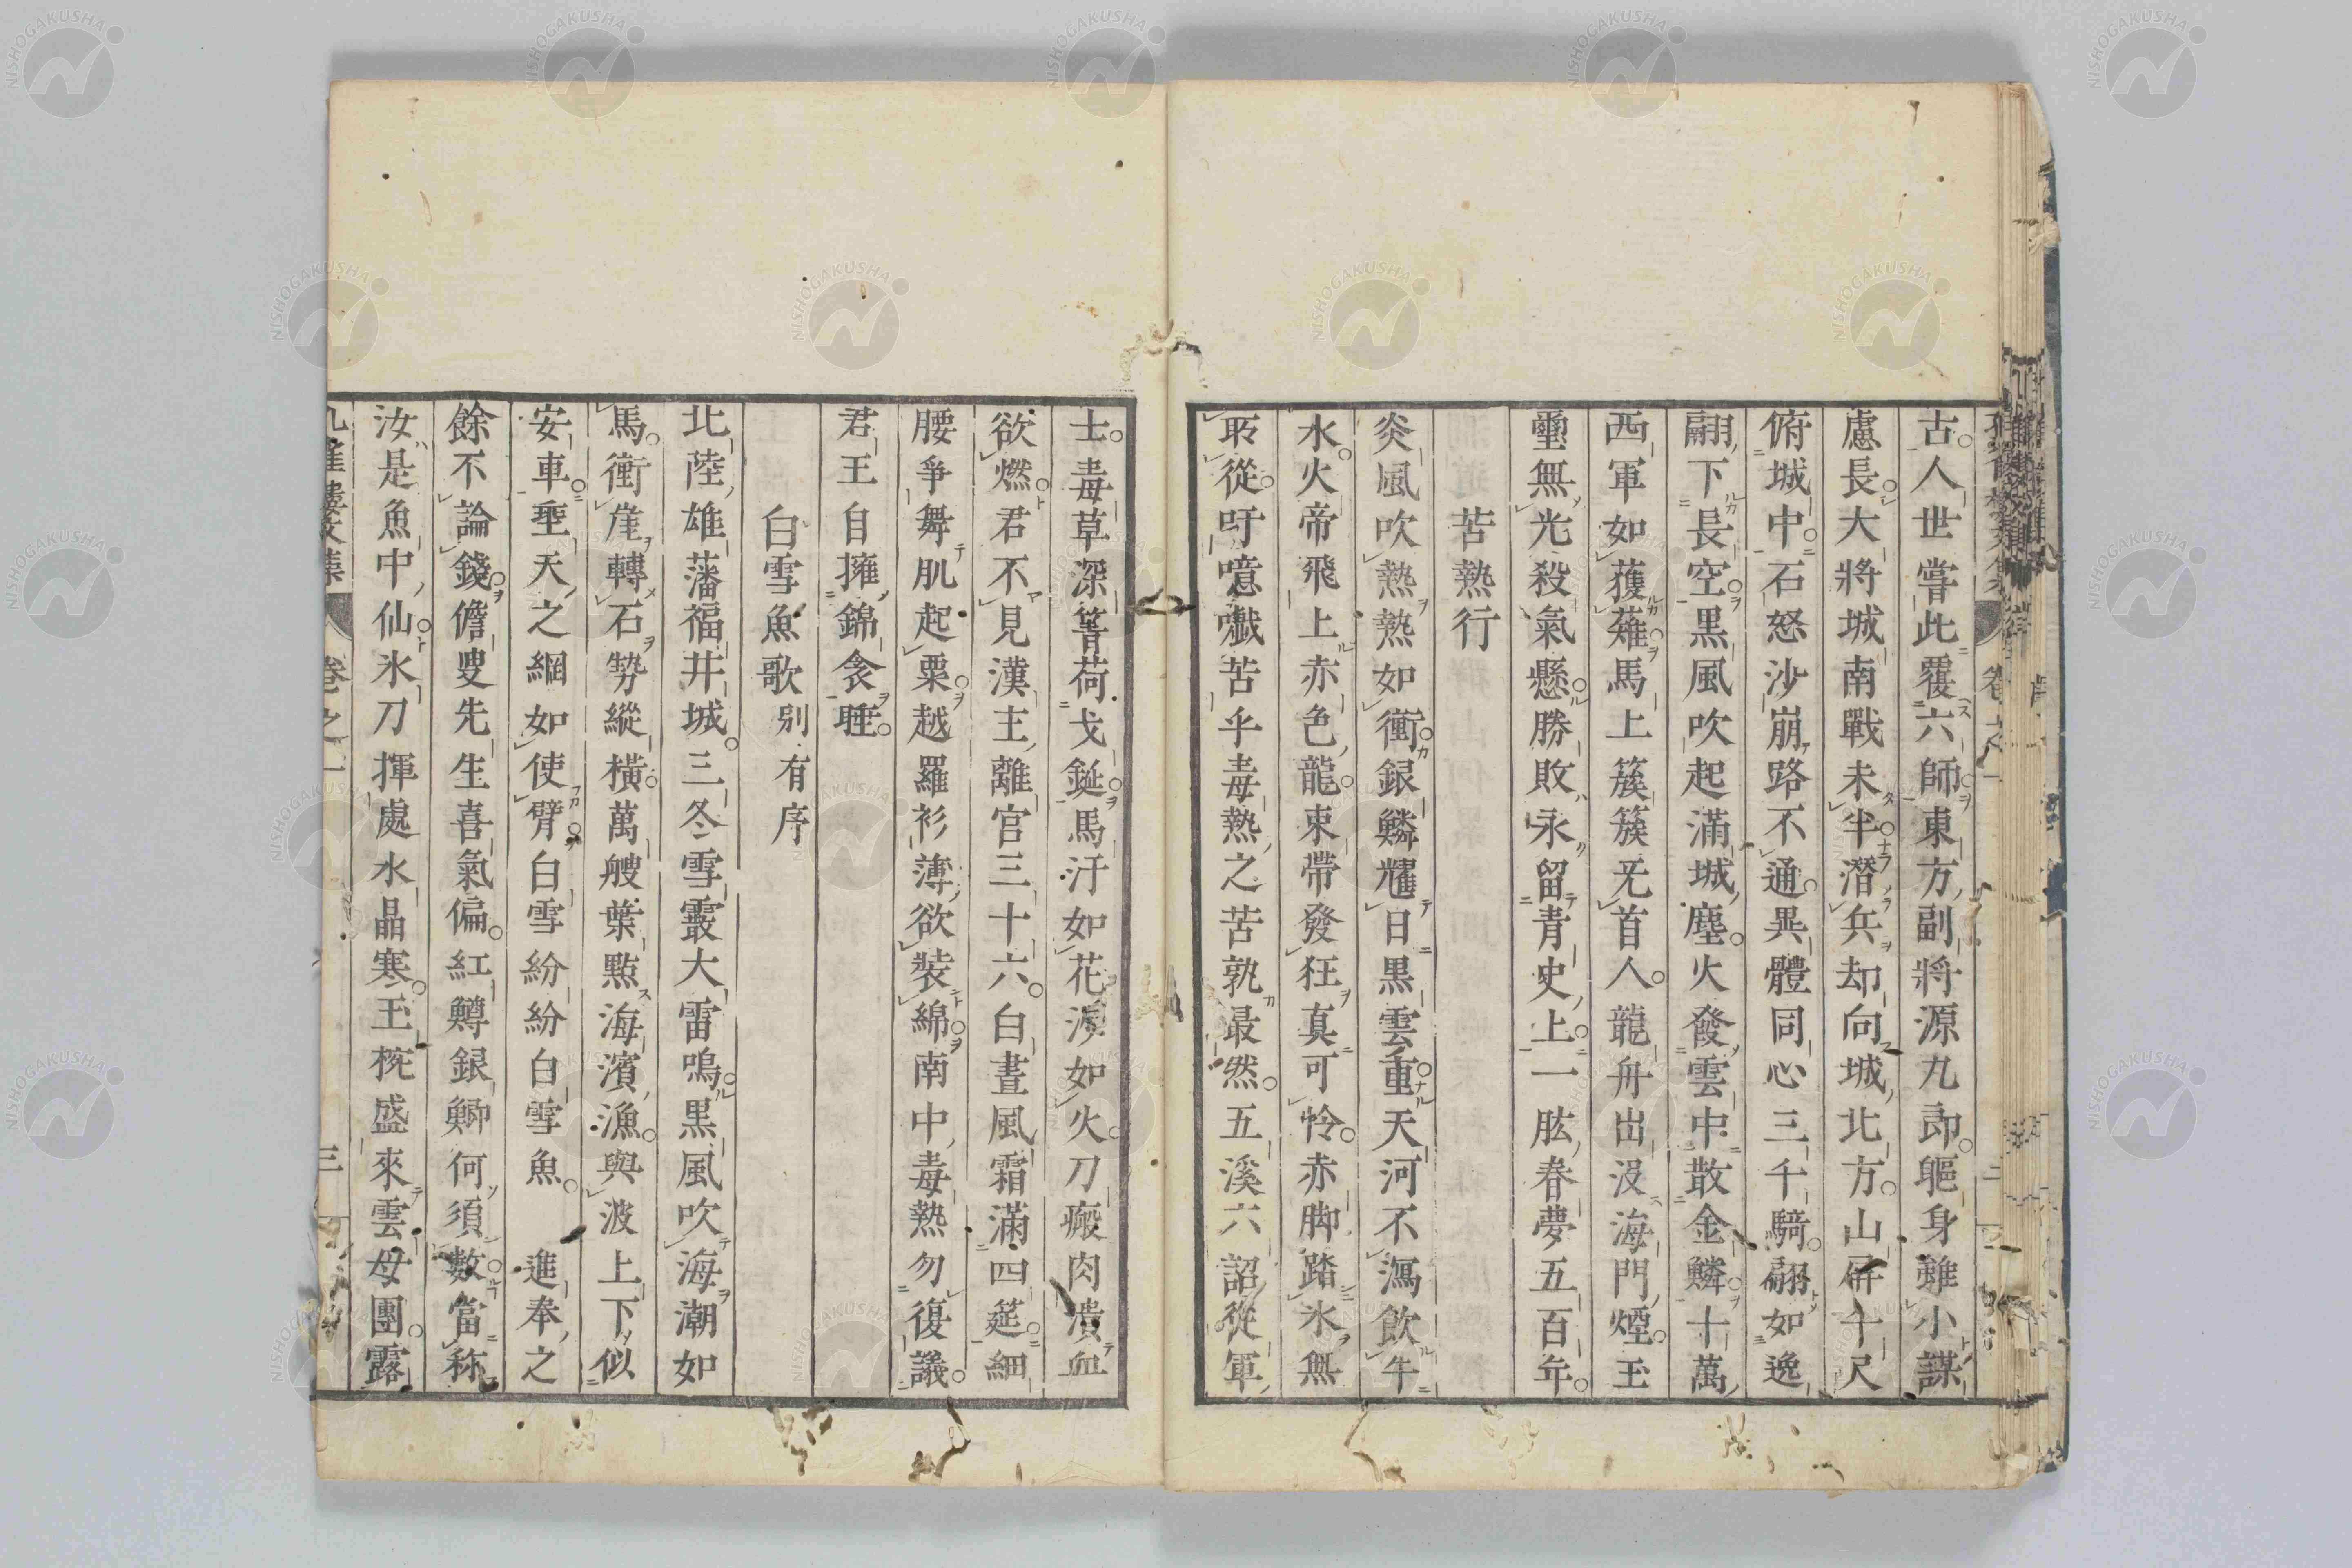 古人世嘗此覆六師東方副將源九郎軀身雖小謀
慮長大將城南戰未半潛兵却向城北方山屏千尺
俯城中石怒沙崩路不通異體同心三千騎翩如逸
翮下長空黑風吹起滿城塵火發雲中散金鱗十萬
西軍如蒦薙馬上簇簇旡首人龍舟出没海門煙玉
璽無光殺氣懸勝敗永留青史上一肱春夢五百年
苦熱行
炎風吹熱熱如衝銀鱗耀日黑雲重天河不瀉飲牛
水火帝飛上赤色龍束帶發狂真可怜赤脚踏氷無
聆從吁噫嚱苦乎毒熱之苦孰最然五溪六詔從軍
士毒草深箐荷戈鋋馬汗如花淚如火刀瘢肉潰血
欲燃君不見漢主離宮三十六白晝風霜滿四筵細
腰爭舞肌起粟越羅衫薄欲裝綿南中毒熱勿復議
君王自擁錦衾睡
白雪魚歌 別有序
北陸雄藩福井城三冬雪霰大雷鳴黑風吹海潮如
馬衝崖轉石勢縱橫萬艘葉點海濱漁與波上下似
安車聖天之網如使臂白雪紛紛白雪魚 進奉之
餘不論錢儋叟先生喜氣偏紅鱒銀鯽何須數當称
汝是魚中仙氷刀揮處水晶寒玉椀盛來雲母團露
卷之一
三
NISHOGAKUSHA